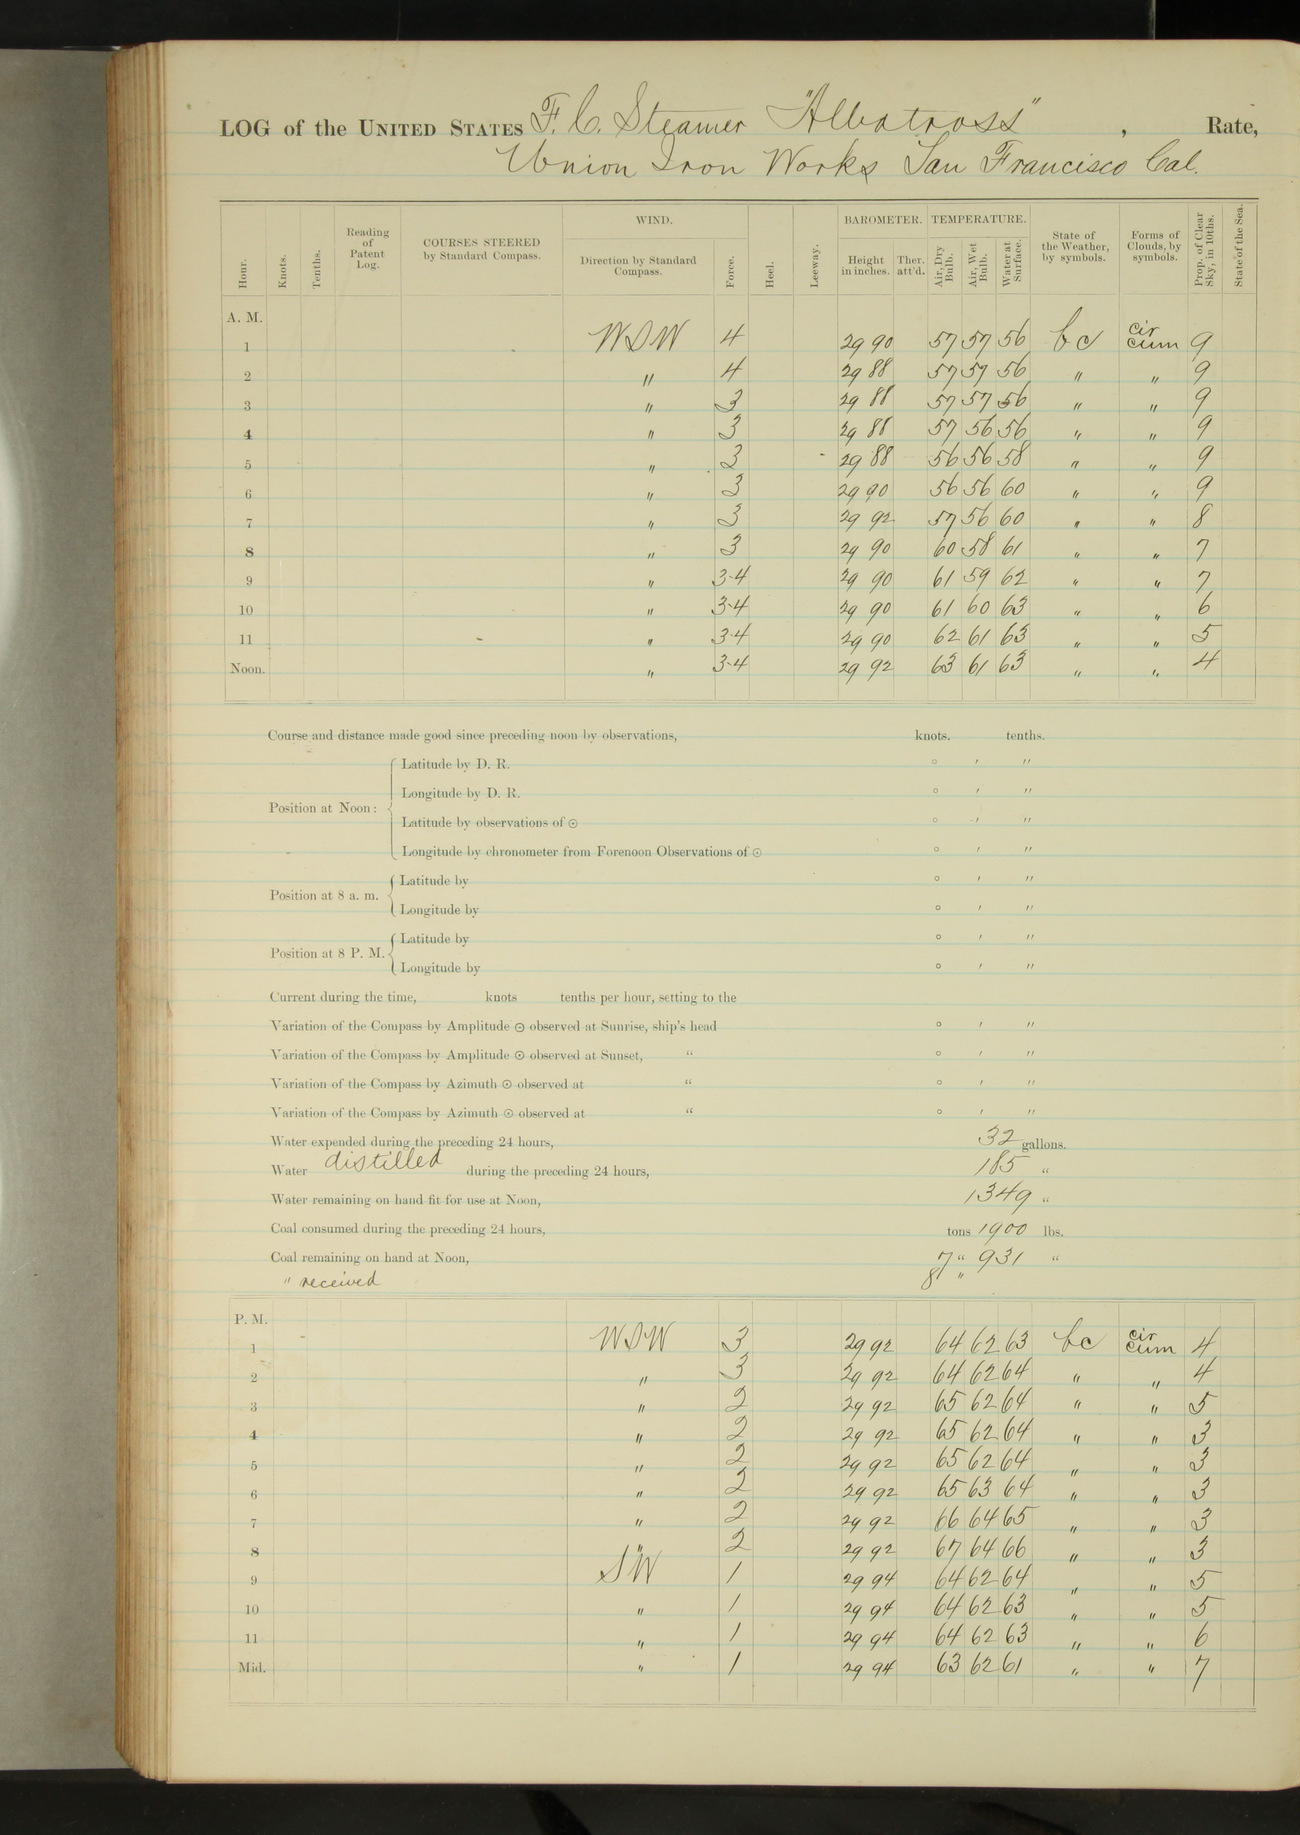 LOG of the UNITED STATES F. C. Steamer "Albatross", Rate,
Union Iron Works San Francisco Cal.
WIND. BAROMETER. TEMPERATURE.
Hour. Knots. Tenths. Reading of Patent Log. COURSES STEERED by Standard Compass. Direction by Standard Compass. Force. Heel. Leeway. Height in inches. Ther. att'd. Air, Dry Bulb. Air, Wet Bulb. Water at Surface. State of the Weather, by symbols. Forms of Clouds, by symbols. Prop. of Clear Sky, in 10ths. State of the Sea.
A. M.
1 WSW 4 29 90 57 57 56 bc cir cum 9
2 " 4 29 88 57 57 56 " " 9
3 " 3 29 88 57 57 56 " " 9
4 " 3 29 88 57 56 56 " " 9
5 " 3 29 88 56 56 58 " " 9
6 " 3 29 90 56 56 60 " " 9
7 " 3 29 92 57 56 60 " " 8
8 " 3 29 90 60 58 61 " " 7
9 " 3-4 29 90 61 59 62 " " 7
10 " 3-4 29 90 61 60 63 " " 6
11 " 3-4 29 90 62 61 63 " " 5
Noon. " 3-4 29 92 63 61 63 " " 4
Course and distance made good since preceding noon by observations, knots. tenths.
Latitude by D. R. ° ′ ″
Longitude by D. R. ° ′ ″
Position at Noon:
Latitude by observations of ☉ ° ′ ″
Longitude by chronometer from Forenoon Observations of ☉ ° ′ ″
Latitude by ° ′ ″
Position at 8 a. m.
Longitude by ° ′ ″
Latitude by ° ′ ″
Position at 8 P. M.
Longitude by ° ′ ″
Current during the time, knots tenths per hour, setting to the
Variation of the Compass by Amplitude ☉ observed at Sunrise, ship's head ° ′ ″
Variation of the Compass by Amplitude ☉ observed at Sunset, " ° ′ ″
Variation of the Compass by Azimuth ☉ observed at " ° ′ ″
Variation of the Compass by Azimuth ☉ observed at " ° ′ ″
Water expended during the preceding 24 hours, 32 gallons.
Water distilled during the preceding 24 hours, 185 "
Water remaining on hand fit for use at Noon, 1349 "
Coal consumed during the preceding 24 hours, tons 1900 lbs.
Coal remaining on hand at Noon, 7 " 931 "
" received 81 "
P. M.
1 WSW 3 29 92 64 62 63 bc cir cum 4
2 " 3 29 92 64 62 64 " " 4
3 " 2 29 92 65 62 64 " " 5
4 " 2 29 92 65 62 64 " " 3
5 " 2 29 92 65 62 64 " " 3
6 " 2 29 92 65 63 64 " " 3
7 " 2 29 92 66 64 65 " " 3
8 " 2 29 92 67 64 66 " " 3
9 SW 1 29 94 64 62 64 " " 5
10 " 1 29 94 64 62 63 " " 5
11 " 1 29 94 64 62 63 " " 6
Mid. " 1 29 94 63 62 61 " " 7